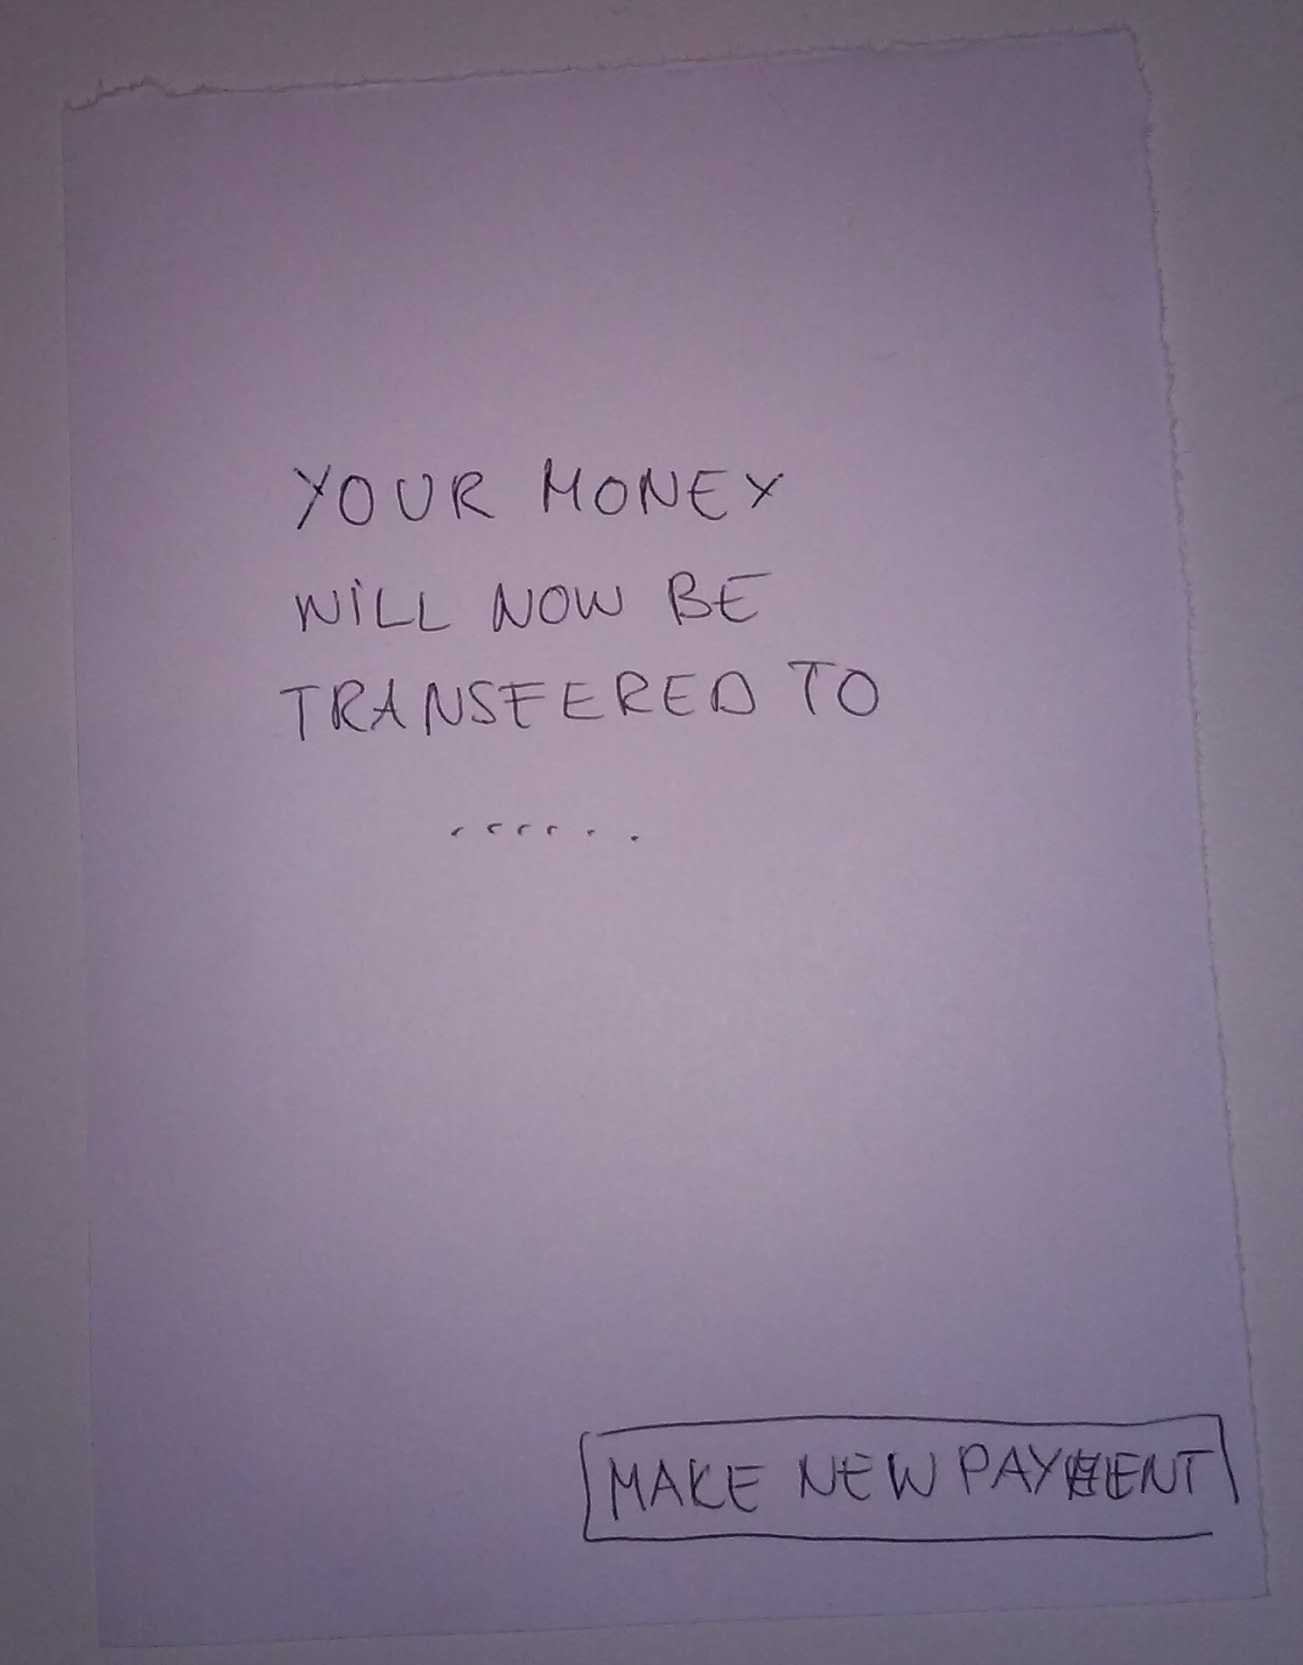 YOUR MONEY
WILL NOW BE
TRANSFERED TO
......
MAKE NEW PAYMENT